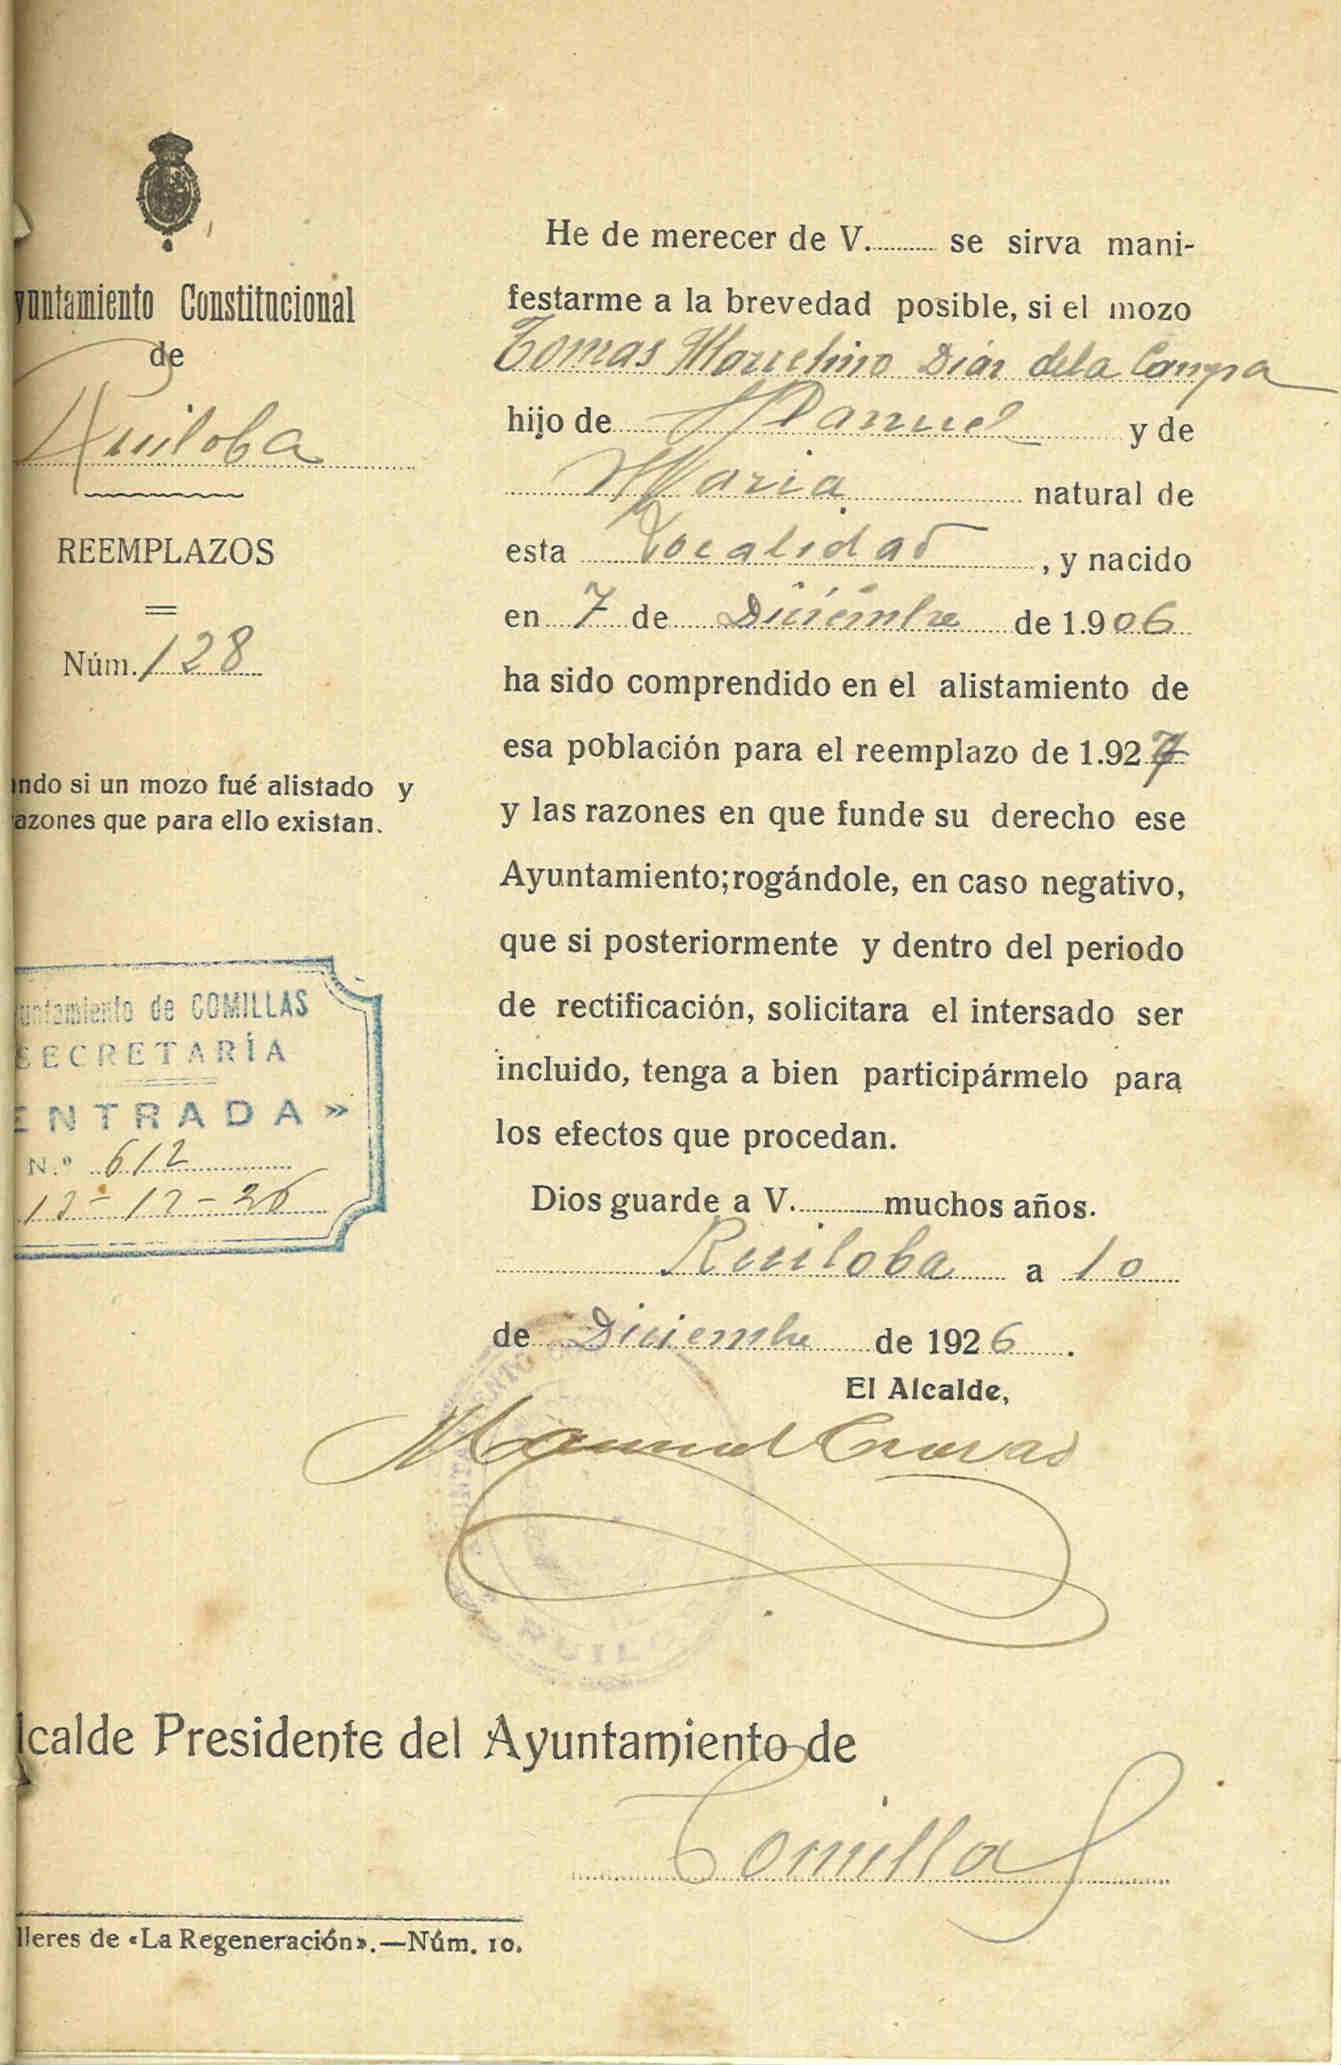 yuntamiento Constitucional
de
Ruiloba
REEMPLAZOS
Núm. 128
ndo si un mozo fué alistado y
azones que para ello existan.
untamiento de COMILLAS
SECRETARÍA
ENTRADA»
N.º 612
13-12-26
He de merecer de V. se sirva mani-
festarme a la brevedad posible, si el mozo
Tomas Marcelino Díaz de la Campa
hijo de Manuel y de
Maria natural de
esta Localidad, y nacido
en 7 de Diciembre de 1.906
ha sido comprendido en el alistamiento de
esa población para el reemplazo de 1.927
y las razones en que funde su derecho ese
Ayuntamiento; rogándole, en caso negativo,
que si posteriormente y dentro del periodo
de rectificación, solicitara el intersado ser
incluido, tenga a bien participármelo para
los efectos que procedan.
Dios guarde a V. muchos años.
Ruiloba a 10
de Diciembre de 1926.
El Alcalde,
Manuel
lcalde Presidente del Ayuntamiento de
Comillas
lleres de «La Regeneración».—Núm. 10.